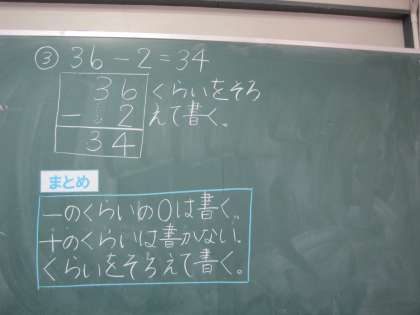 ③ 36-2=34
36 くらいをそろ
- 2 えて書く。
34
まとめ
一のくらいの0は書く。
十のくらいは書かない。
くらいをそろえて書く。